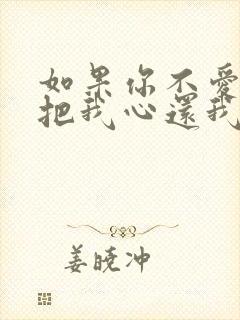 如果你不愛
把我心還我
姜曉冲